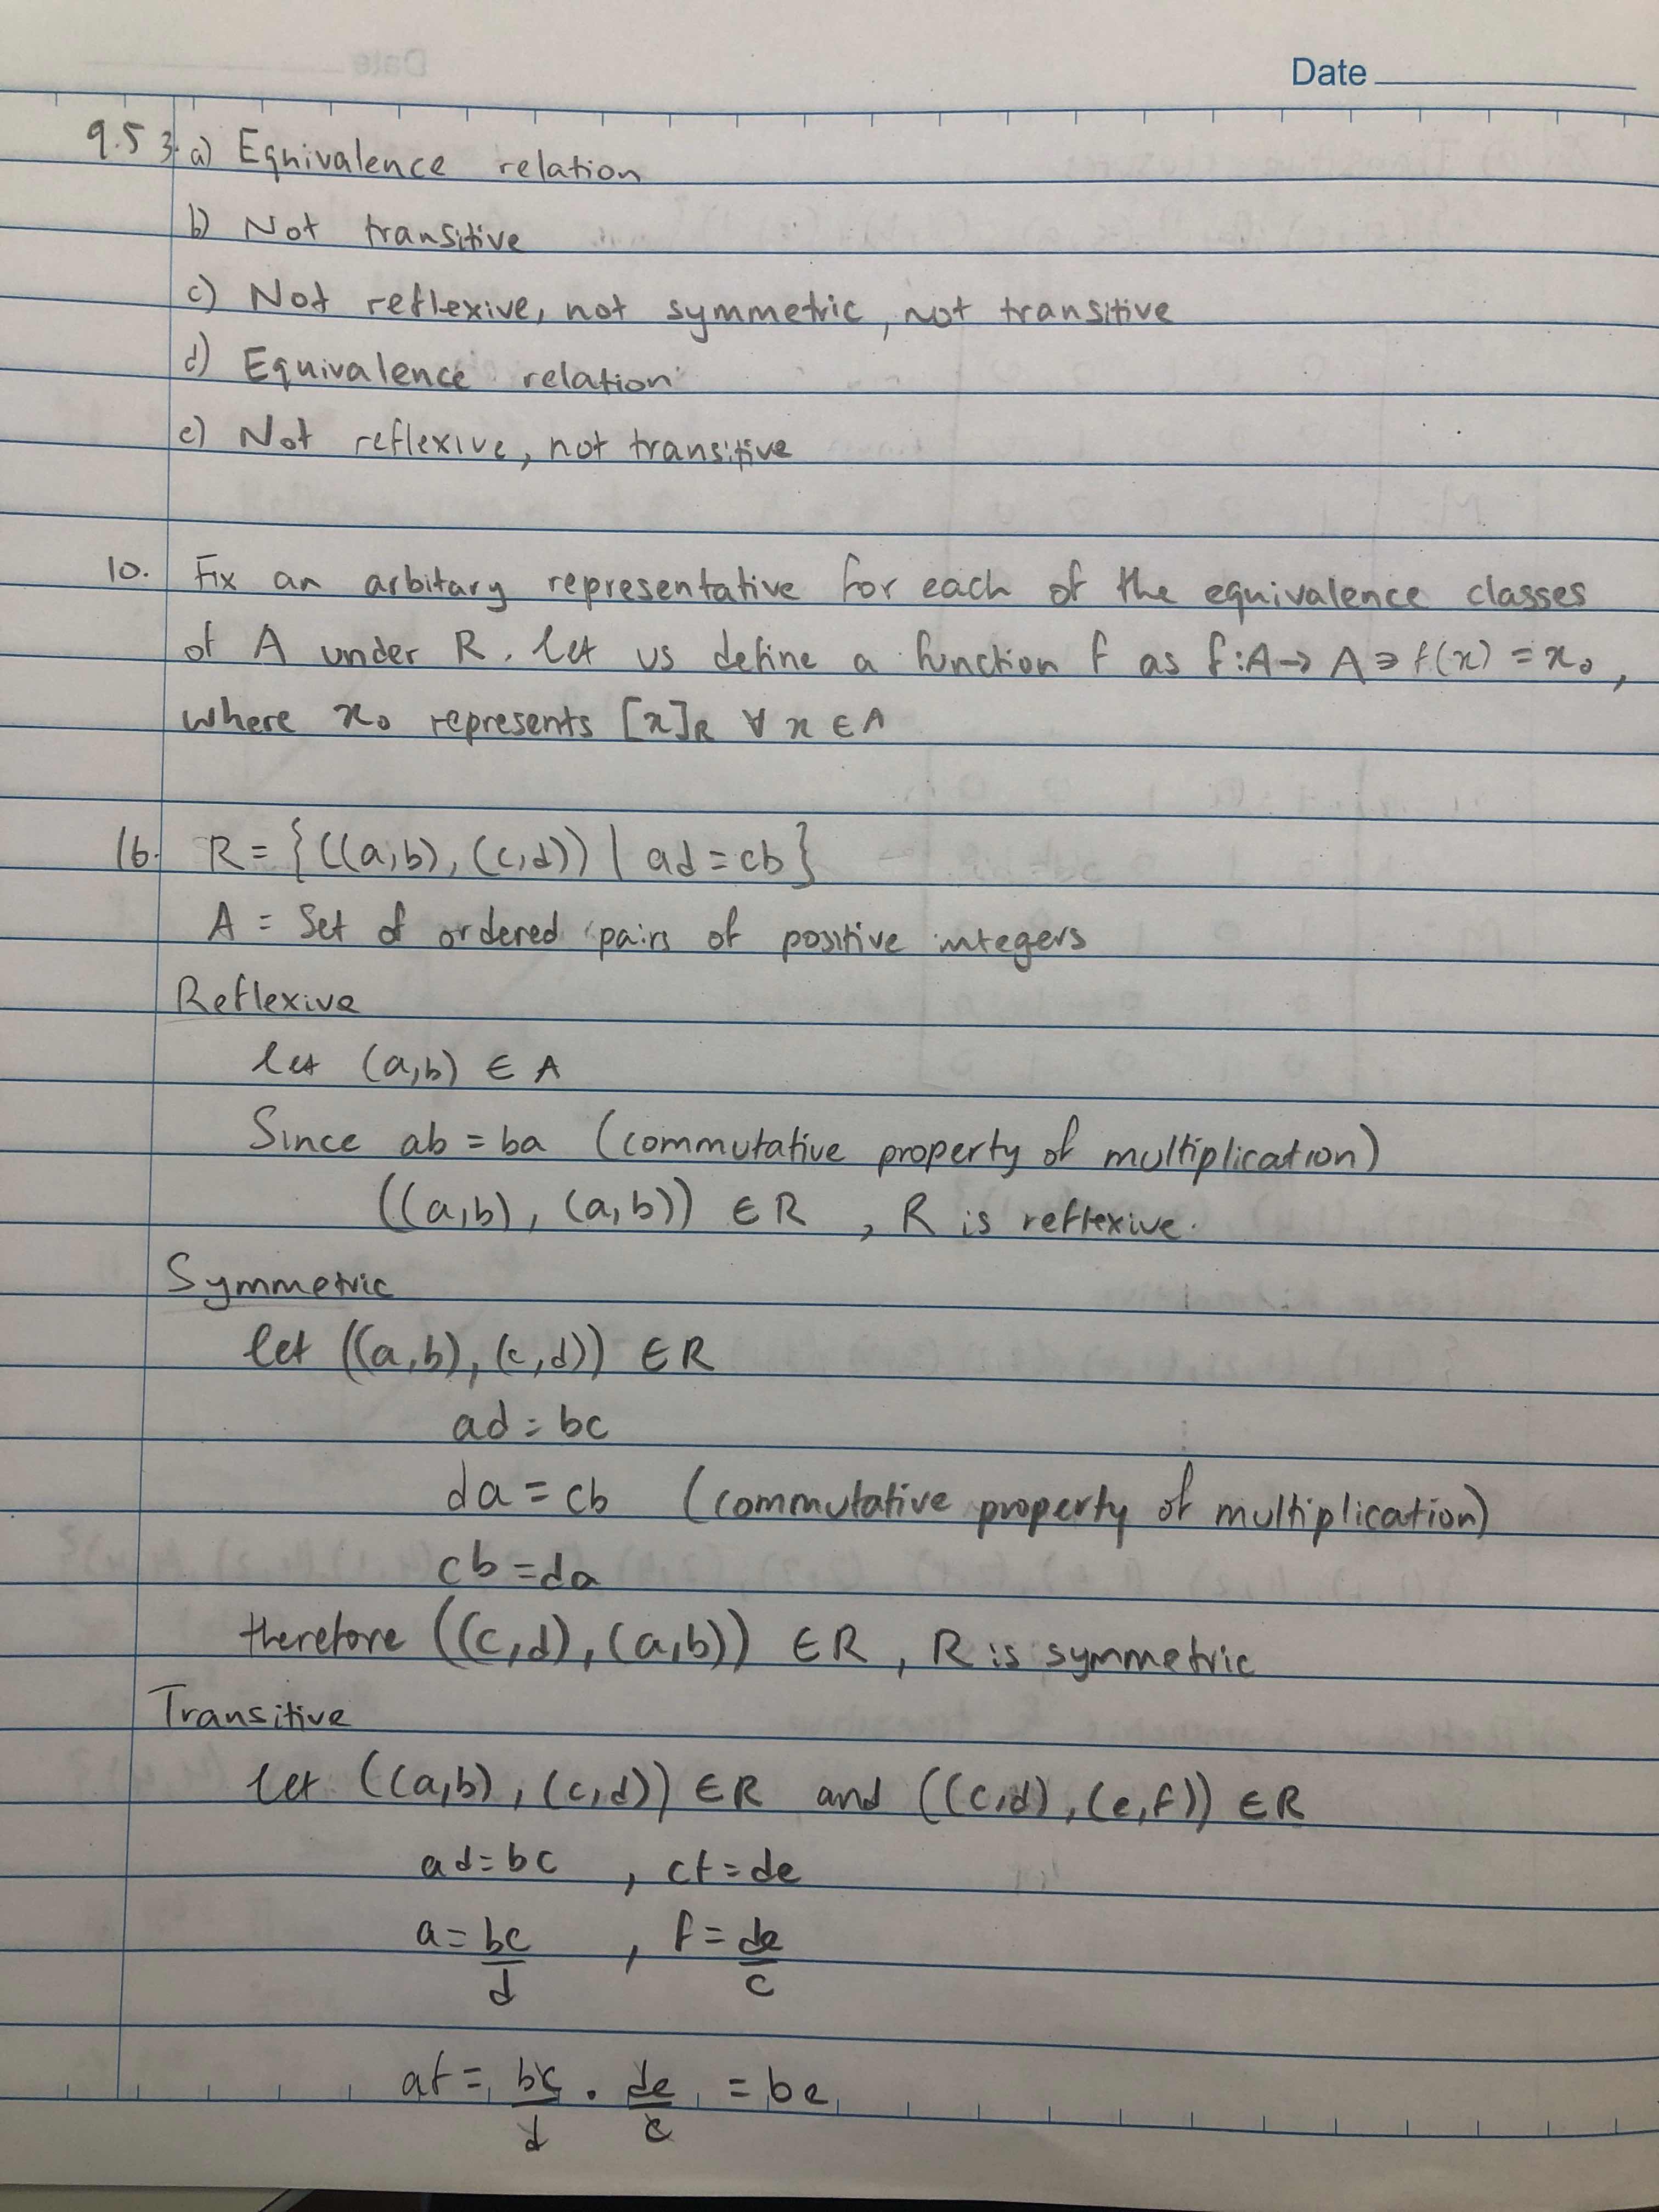 Date
9.5 3. a) Equivalence relation
b) Not transitive
c) Not reflexive, not symmetric, not transitive
d) Equivalence relation
e) Not reflexive, not transitive
10. Fix an arbitary representative for each of the equivalence classes
of A under R. Let us define a function f as f:A→A ∋ f(x) = x₀,
where x₀ represents [x]R ∀ x ∈ A
16. R = {((a,b), (c,d)) | ad = cb}
A = Set of ordered pairs of positive integers
Reflexive
let (a,b) ∈ A
Since ab = ba (commutative property of multiplication)
((a,b), (a,b)) ∈ R, R is reflexive.
Symmetric
let ((a,b), (c,d)) ∈ R
ad = bc
da = cb (commutative property of multiplication)
cb = da
therefore ((c,d), (a,b)) ∈ R, R is symmetric
Transitive
let ((a,b), (c,d)) ∈ R and ((c,d), (e,f)) ∈ R
ad = bc, cf = de
a = bc/d, f = de/c
af = bc/d . de/c = be